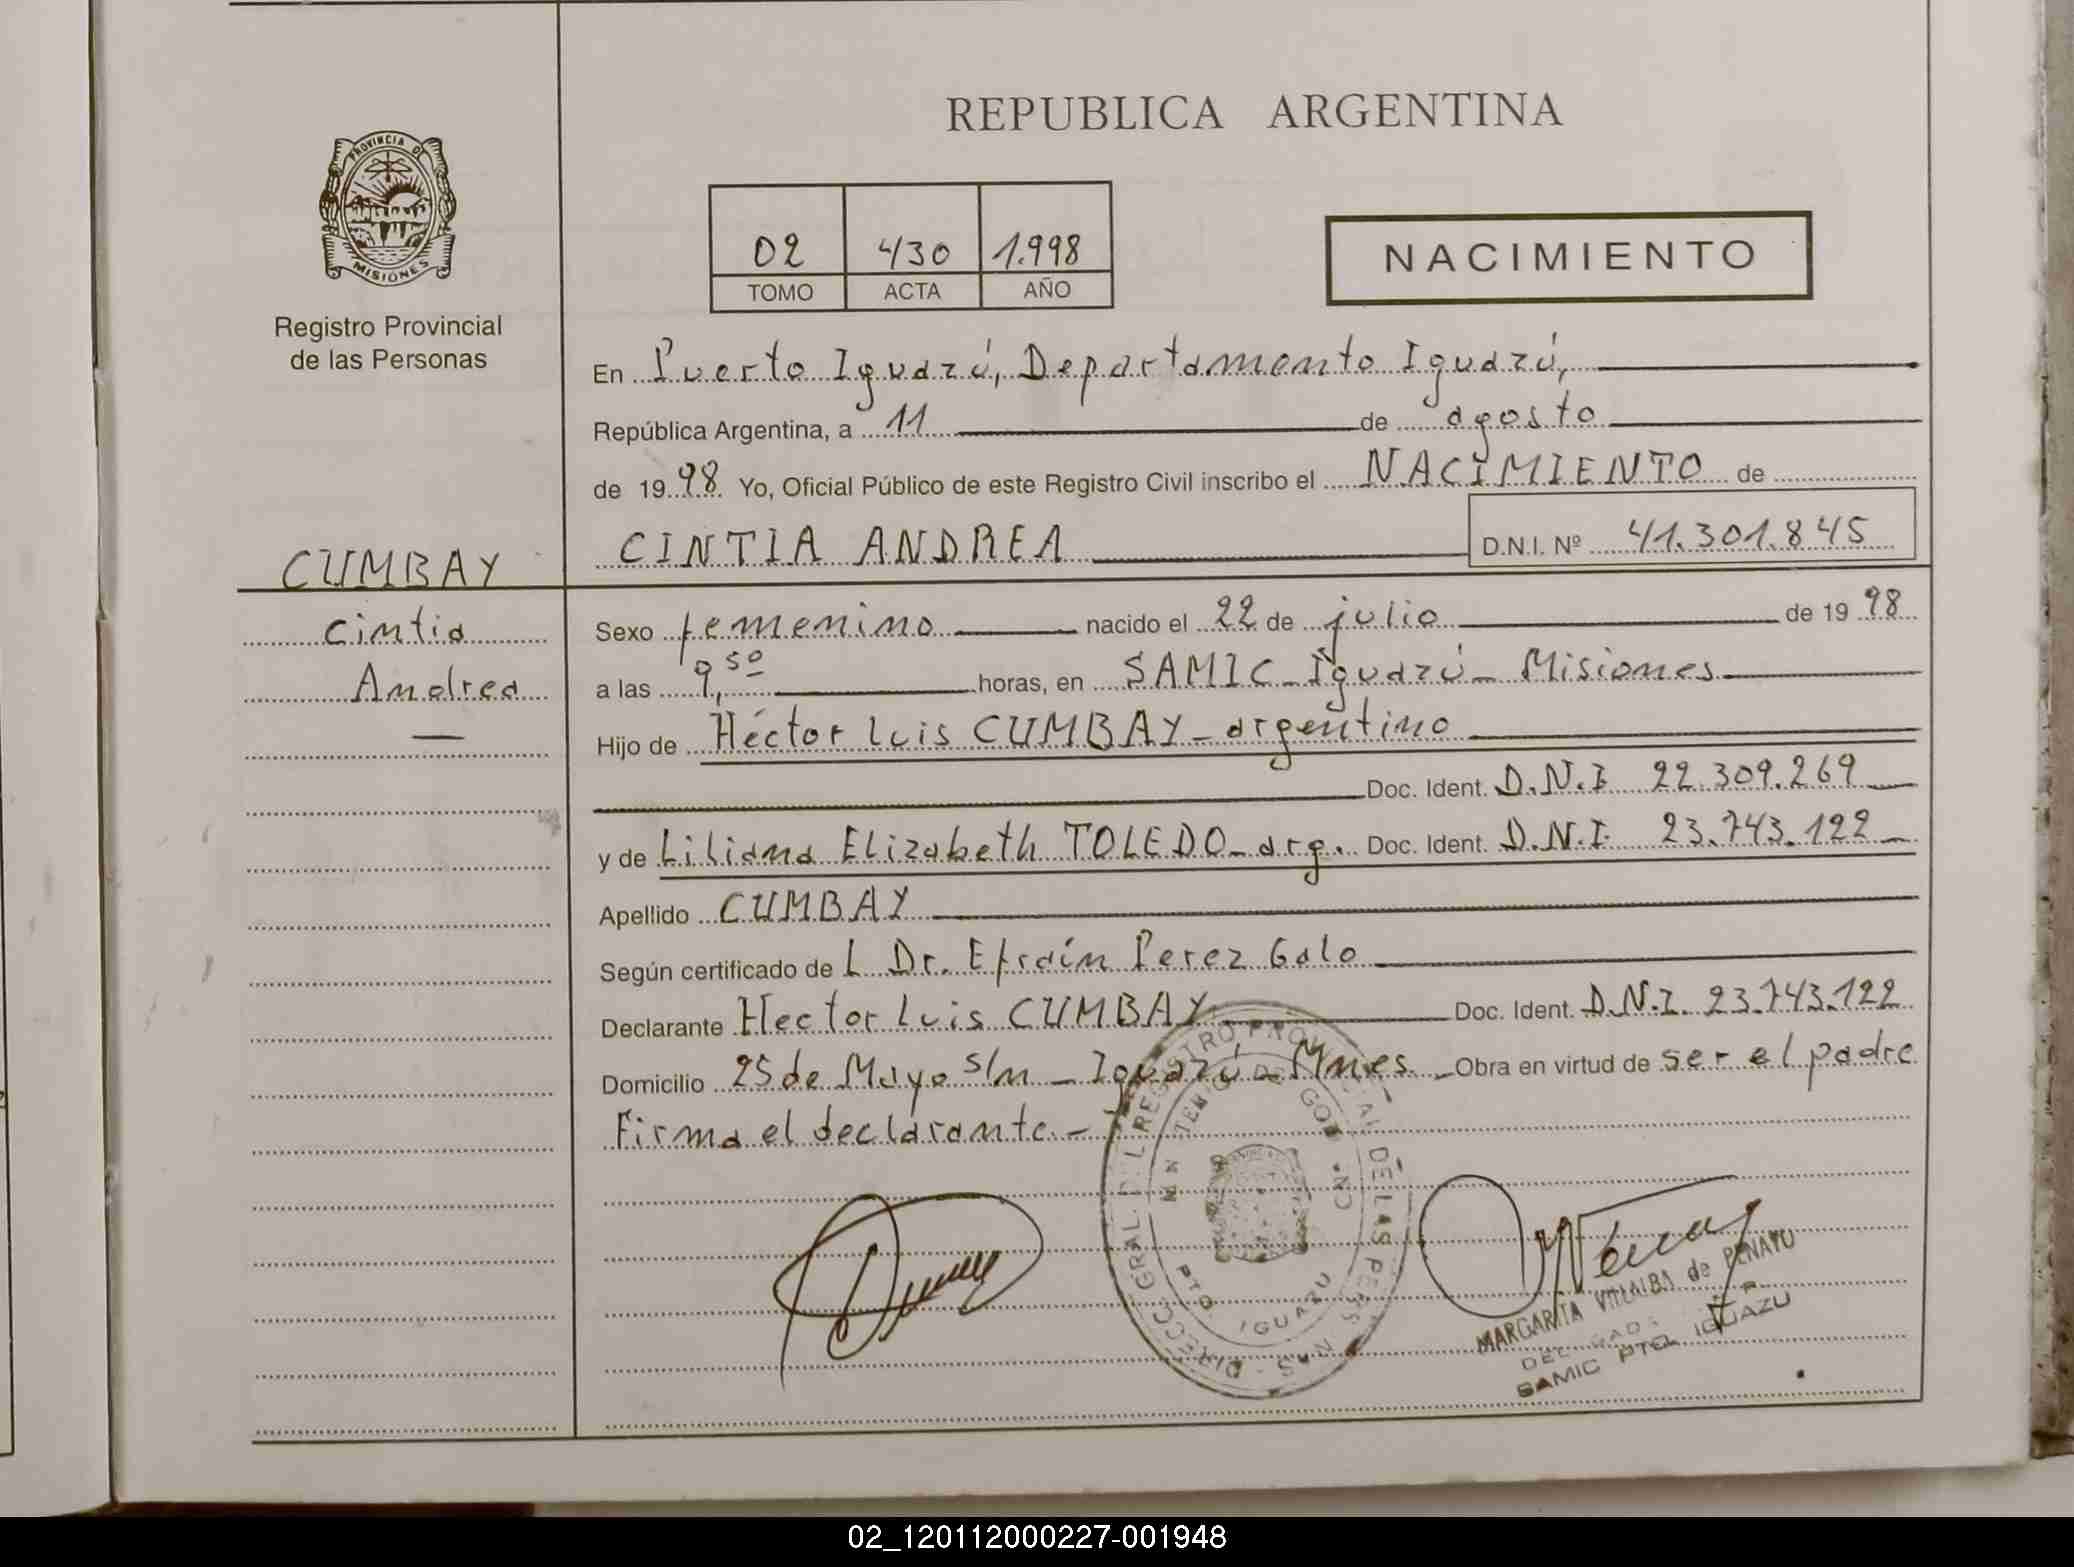 REPUBLICA ARGENTINA
PROVINCIA DE
MISIONES
Registro Provincial
de las Personas
02 430 1.998
TOMO ACTA AÑO
NACIMIENTO
En Puerto Iguazú, Departamento Iguazú,
República Argentina, a 11 de agosto
de 19 98 Yo, Oficial Público de este Registro Civil inscribo el NACIMIENTO de
CUMBAY
CINTIA ANDREA D.N.I. Nº 41.301.845
Cintia
Andrea
Sexo femenino nacido el 22 de julio de 19 98
a las 9,50 horas, en SAMIC - Iguazú - Misiones
Hijo de Héctor Luis CUMBAY - argentino
Doc. Ident. D.N.I 22.309.269
y de Liliana Elizabeth TOLEDO - arg. Doc. Ident. D.N.I. 23.743.122
Apellido CUMBAY
Según certificado de L Dr. Efraín Perez Galo
Declarante Hector Luis CUMBAY Doc. Ident. D.N.I. 23.743.122
Domicilio 25 de Mayo s/n - Iguazú - Mnes - Obra en virtud de ser el padre
Firma el declarante -
DIRECC. GRAL. DEL REGISTRO PROVINCIAL DE LAS PERSONAS
PTO. IGUAZU
MARGARITA VILLALBA de PENAYO
SAMIC PTO. IGUAZU
02_120112000227-001948